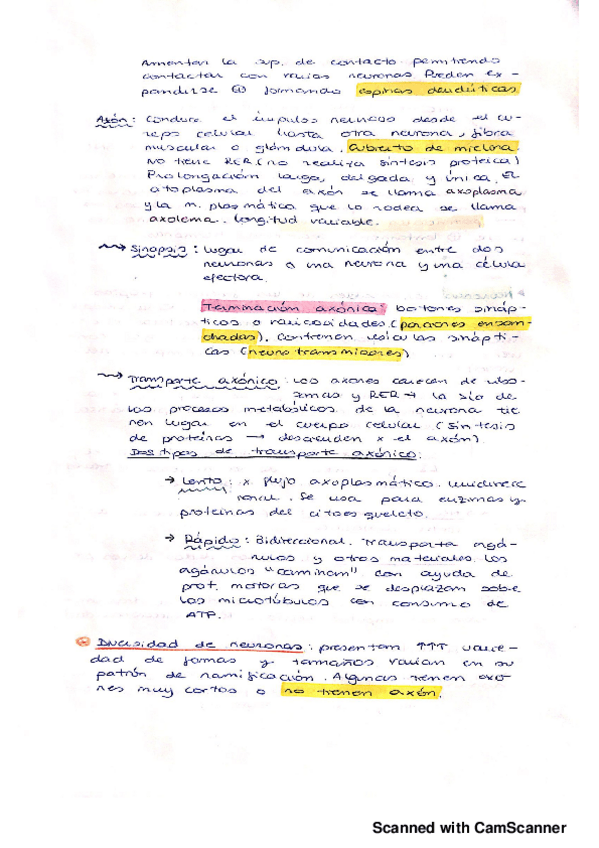 Aumentan la sup. de contacto permitiendo
contactar con varias neuronas Pueden ex-
pandirse formando espinas dendríticas
Axón: Conduce el impulso nervioso desde el cu-
erpo celular hasta otra neurona, fibra
muscular o glándula. Cubierto de mielina
No tiene RER (no realiza síntesis proteica)
Prolongación larga, delgada y única. El
citoplasma del axón se llama axoplasma
y la m. plasmática que lo rodea se llama
axolema. Longitud variable.
Sinapsis: lugar de comunicación entre dos
neuronas o una neurona y una célula
efectora.
Terminación axónica: botones sináp-
ticos o varicosidades (porciones ensan-
chadas). Contienen vesículas sinápti-
cas (neurotransmisores)
Transporte axónico: Los axones carecen de ribo-
somas y RER → la de
los procesos metabólicos de la neurona tie
nen lugar en el cuerpo celular (síntesis
de proteínas → descienden x el axón).
Dos tipos de transporte axónico:
→ Lento: x flujo axoplasmático. unidirecc
ional. Se usa para enzimas y
proteínas del citoesqueleto.
→ Rápido: Bidireccional. Transporta orgá-
nulos y otros materiales. Los
orgánulos "caminan" con ayuda de
prot. motoras que se desplazan sobre
los microtúbulos con consumo de
ATP.
Diversidad de neuronas: presentan ↑↑↑ varie-
dad de formas y tamaños varían en su
patrón de ramificación. Algunas tienen axo
nes muy cortos o no tienen axón.
Scanned with CamScanner